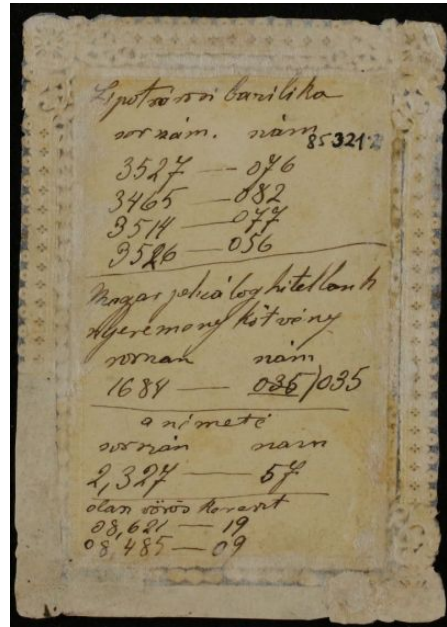 Lipotvárosi bazilika
sor zám. nám
85321.2
3527 — 076
3465 — 082
3514 — 077
3526 — 056
Magar jelzáloghitelbank
nyeremeny kötvény
nám
1684 — 035
a németé
sorzán nam
2,327 — 57
olan vörös kereszt
08,621 — 19
08,485 — 09